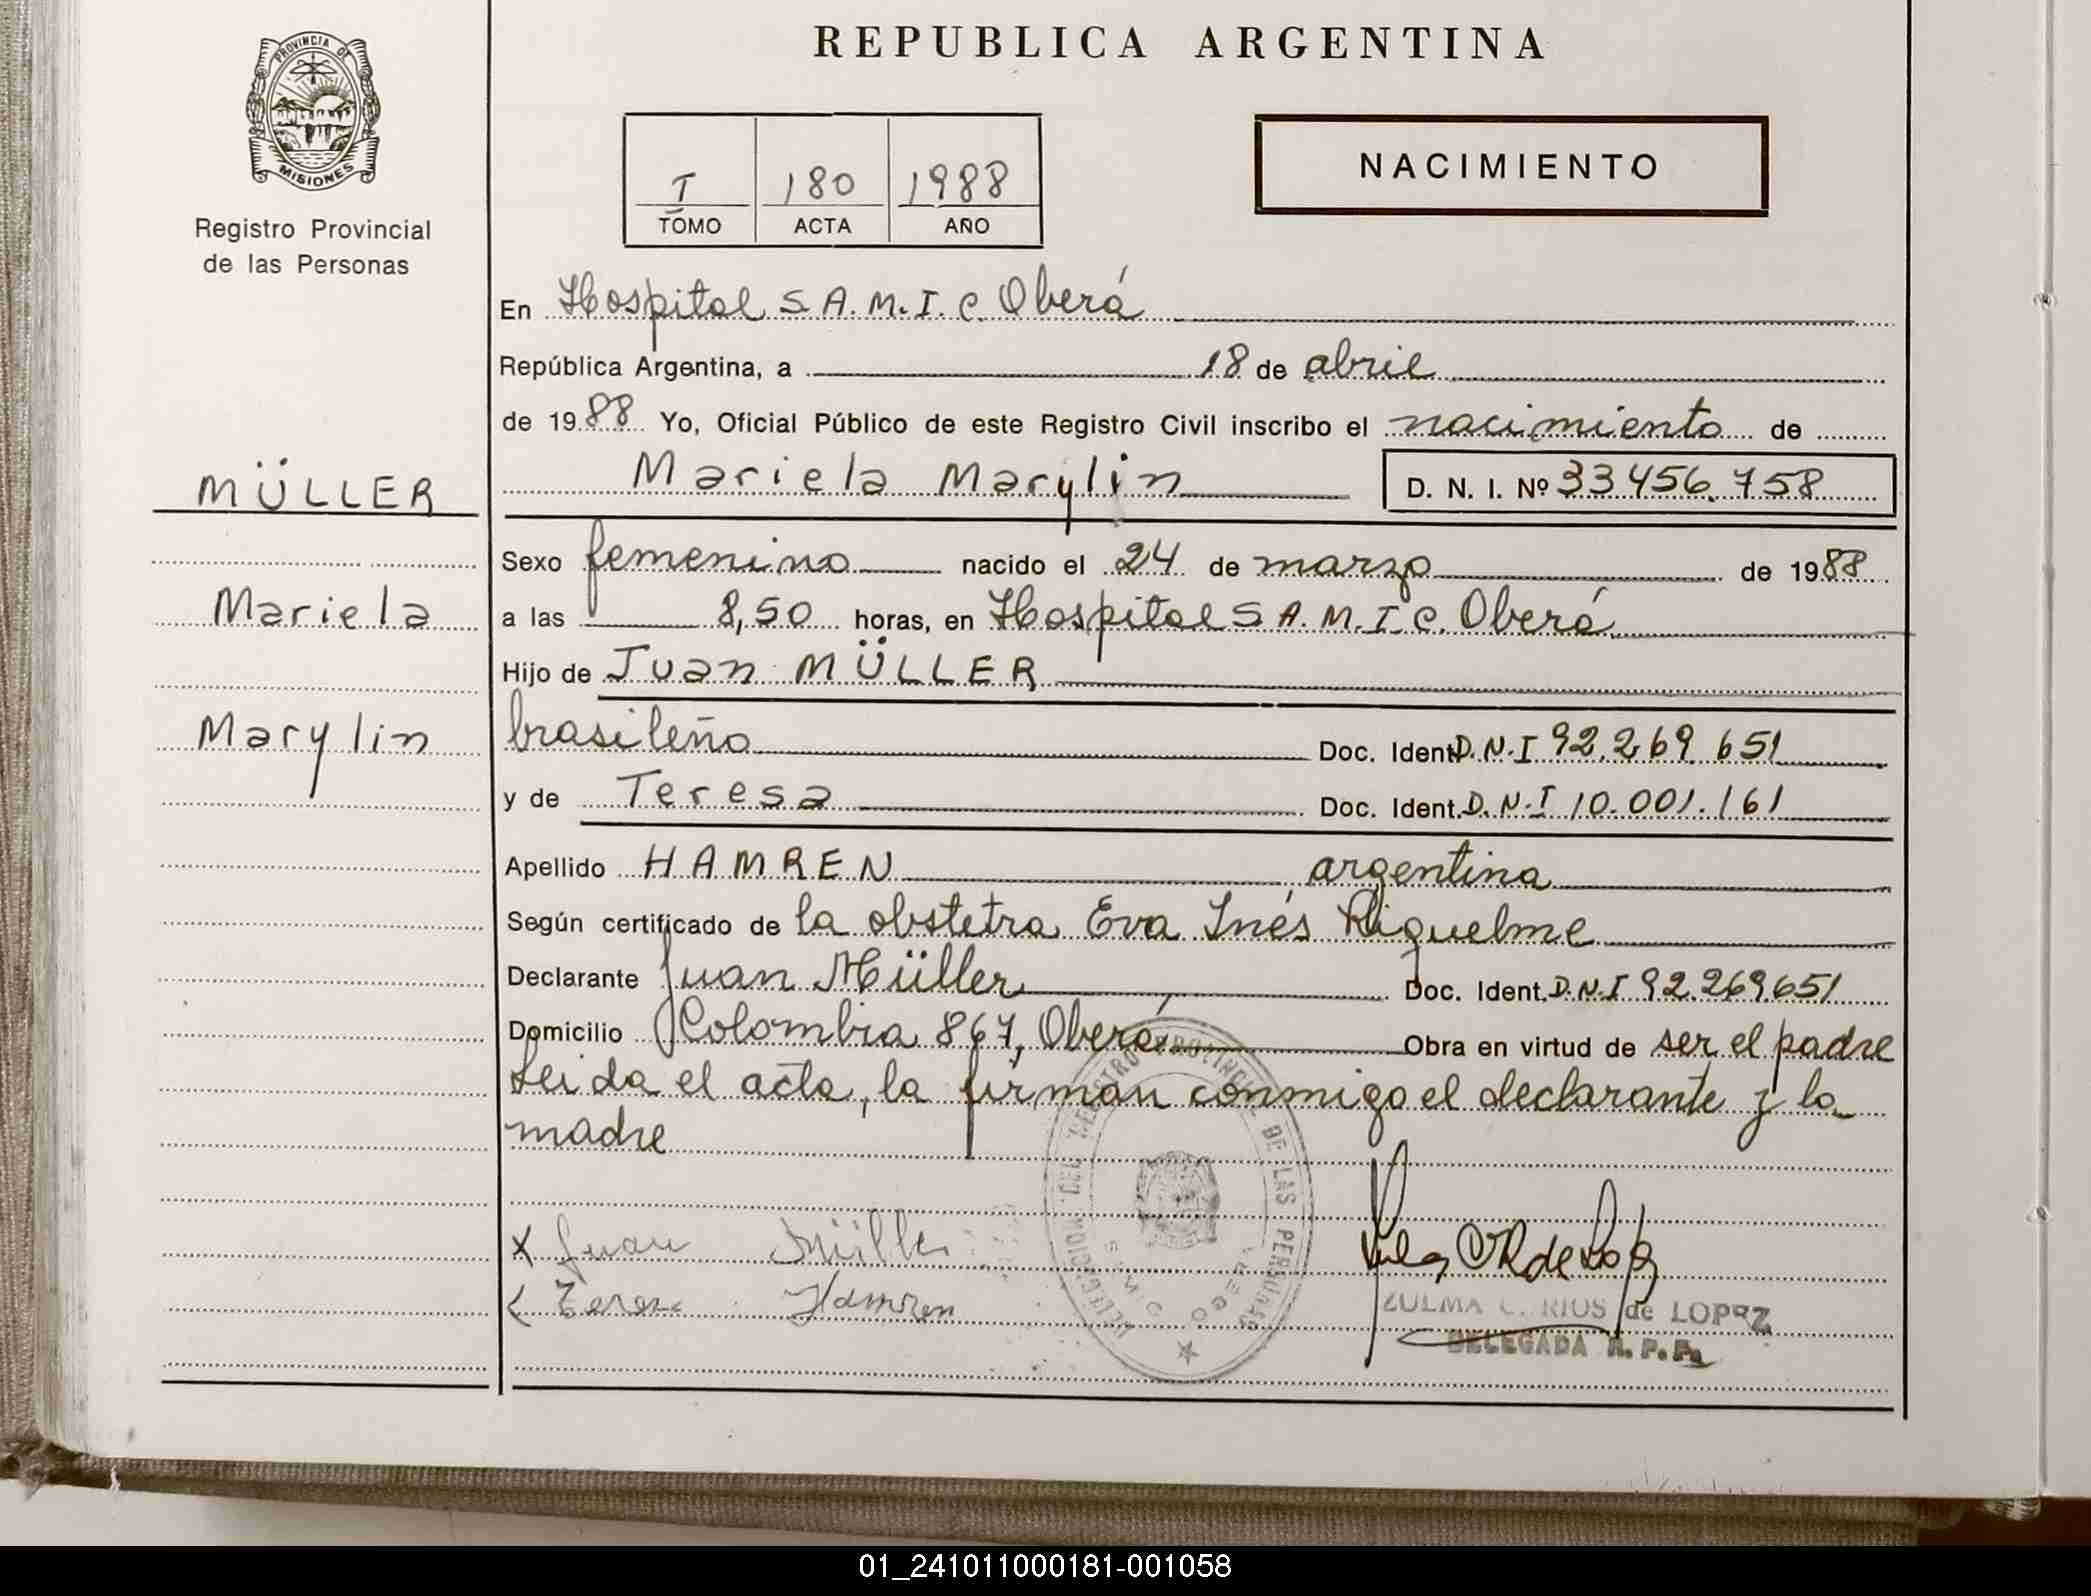 REPUBLICA ARGENTINA
PROVINCIA DE
MISIONES
Registro Provincial
de las Personas
I 180 1988
TOMO ACTA AÑO
NACIMIENTO
En Hospital S.A.M.I.C. Oberá
República Argentina, a 18 de abril
de 1988 Yo, Oficial Público de este Registro Civil inscribo el nacimiento de
Mariela Marylin D. N. I. Nº 33456.758
MÜLLER
Mariela
Marylin
Sexo femenino nacido el 24 de marzo de 1988
a las 8,50 horas, en Hospital S A.M.I.C. Oberá
Hijo de Juan MÜLLER
brasileño Doc. Ident. D.N.I 92.269.651
y de Teresa Doc. Ident. D.N.I 10.001.161
Apellido HAMREN argentina
Según certificado de la obstetra Eva Inés Riquelme
Declarante Juan Müller Doc. Ident. D.N.I 92.269.651
Domicilio Colombia 867, Oberá Obra en virtud de ser el padre
Leida el acta, la firman conmigo el declarante y la
madre
x Juan Müller
Teresa Hamren
DEL REGISTRO PROVINCIAL DE LAS PERSONAS
ZULMA C. RIOS de LOPEZ
DELEGADA R.P.P.
01_241011000181-001058